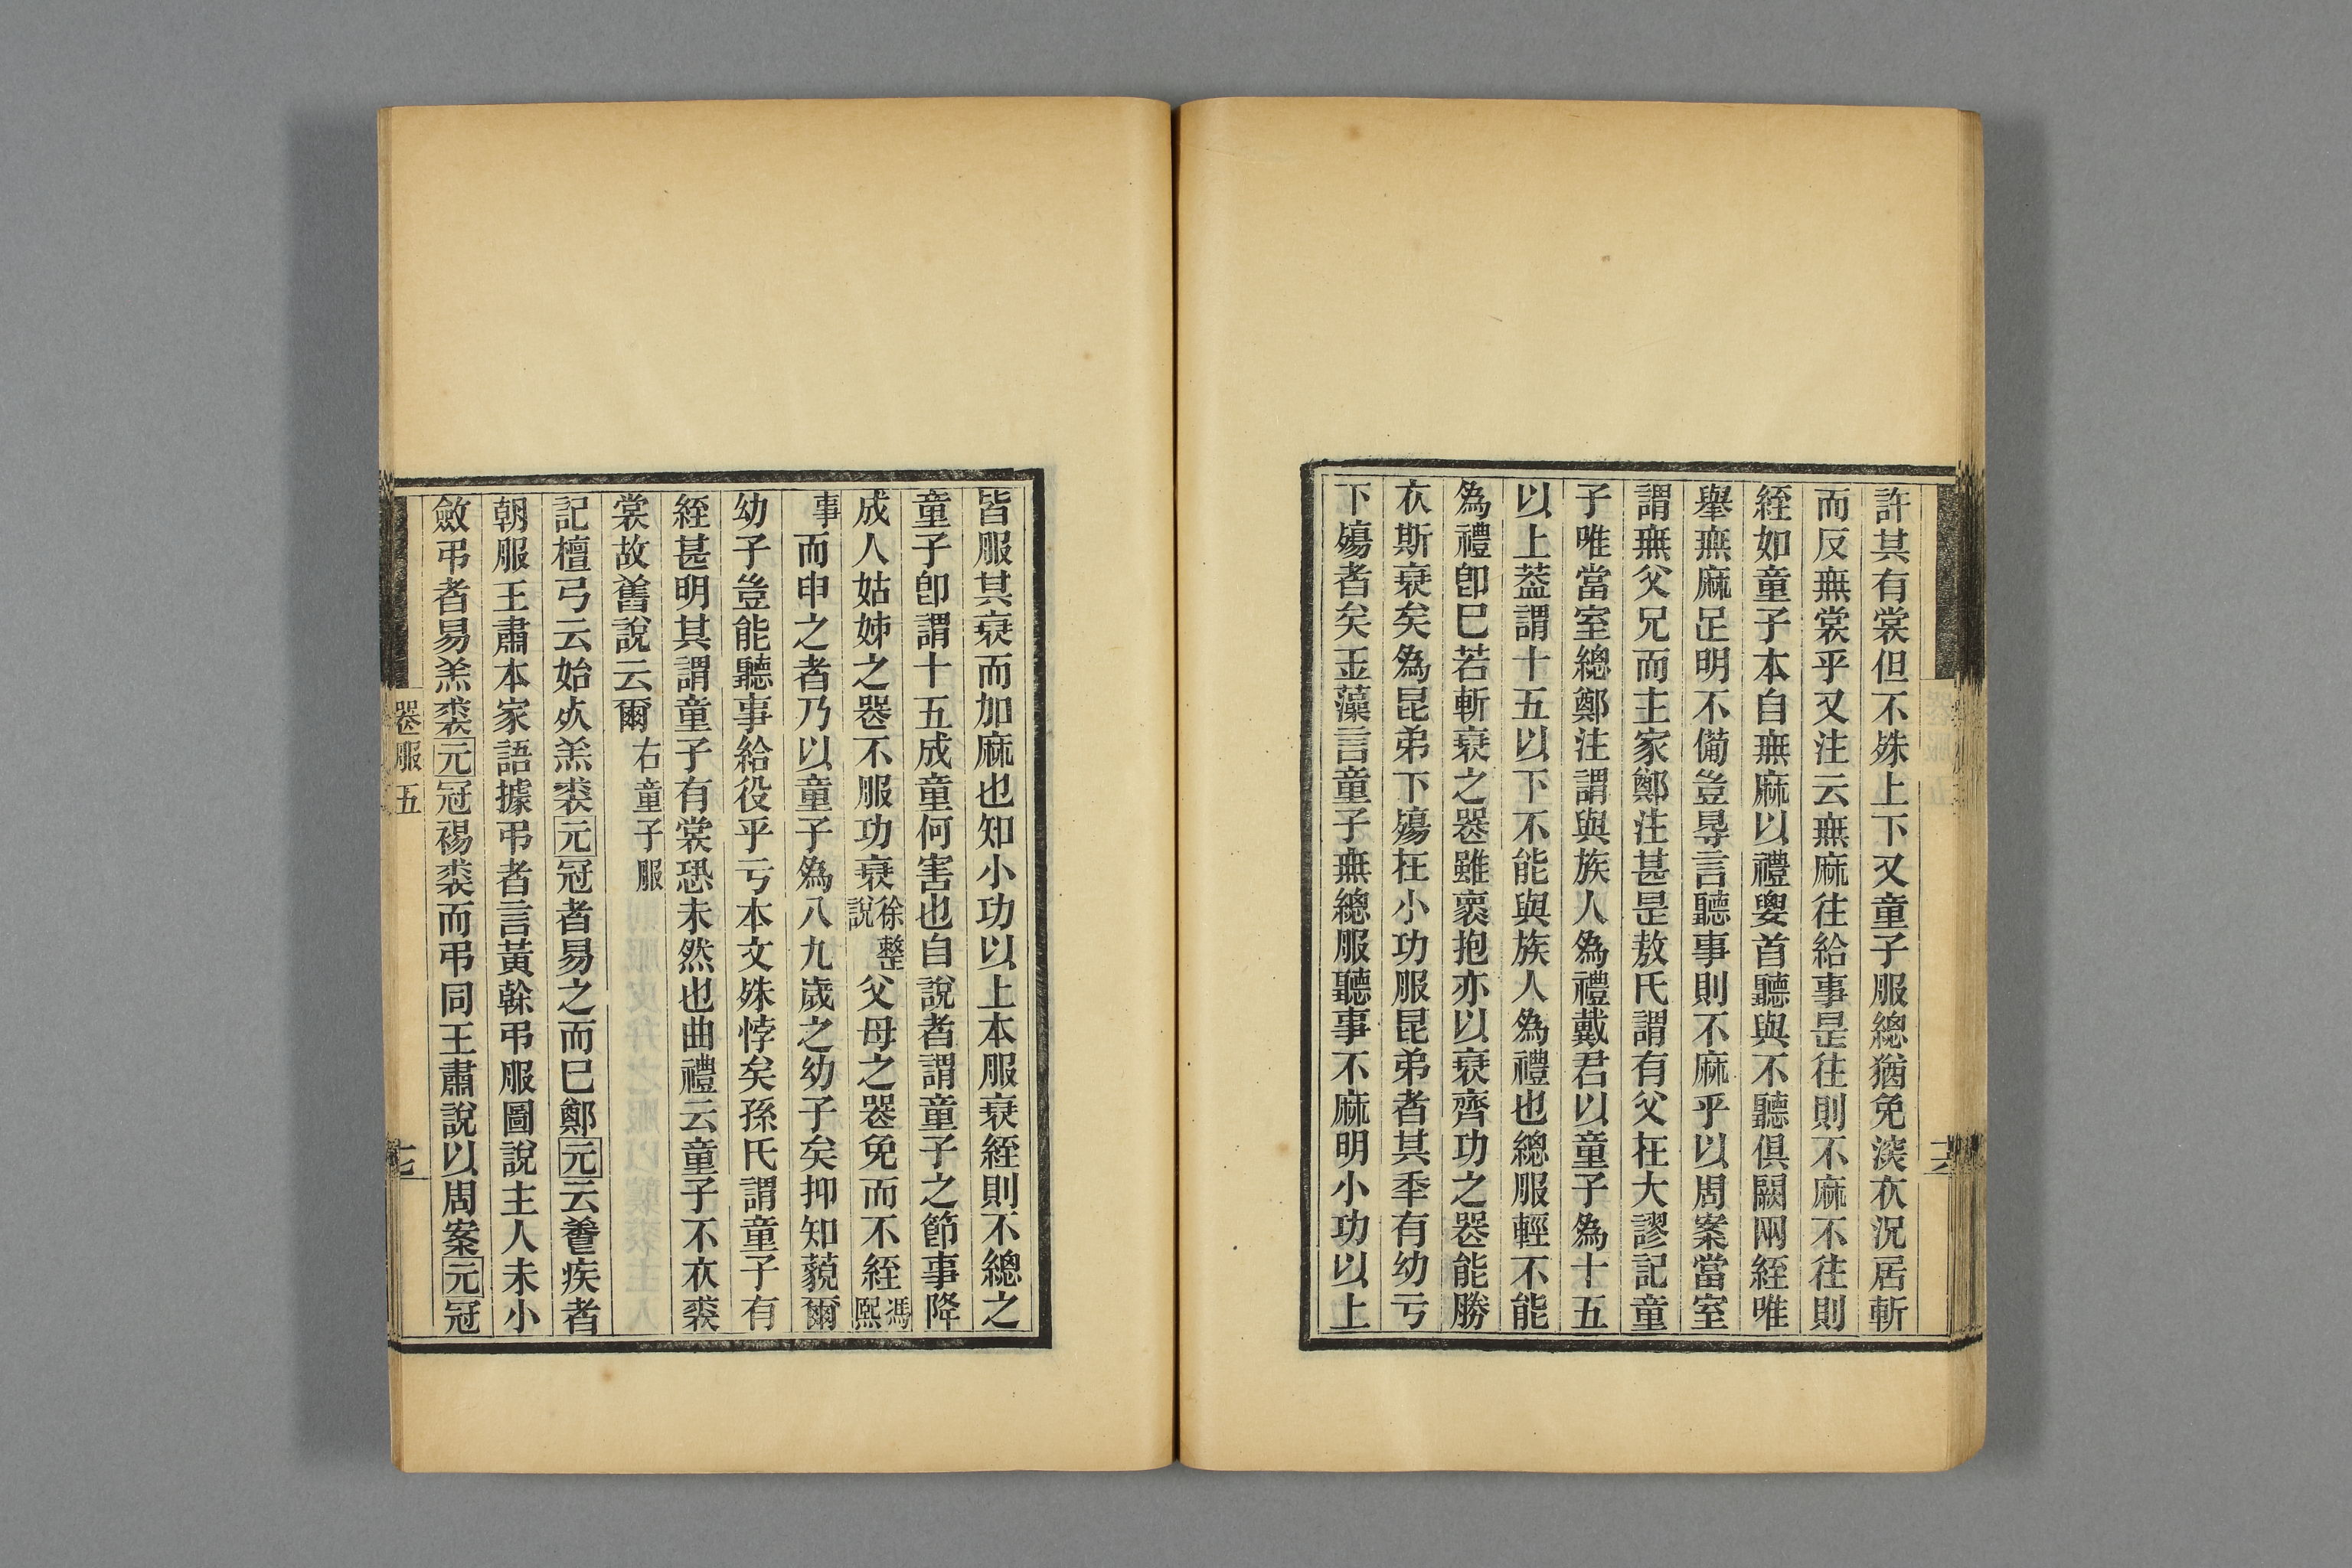 許其有裳但不殊上下又童子服緦猶免深衣況居斬
而反無裳乎又注云無麻往給事是往則不麻不往則
絰如童子本自無麻以禮嬰首聽與不聽俱闕兩絰唯
舉無麻足明不備豈㝵言聽事則不麻乎以周案當室
謂無父兄而主家鄭注甚是敖氏謂有父在大謬記童
子唯當室緦鄭注謂與族人爲禮戴君以童子爲十五
以上葢謂十五以下不能與族人爲禮也緦服輕不能
爲禮卽巳若斬衰之喪雖褱抱亦以衰齊功之喪能勝
衣斯衰矣爲昆弟下殤在小功服昆弟者其年有幼亏
下殤者矣玉藻言童子無緦服聽事不麻明小功以上
十六
皆服其衰而加麻也知小功以上本服衰絰則不緦之
童子卽謂十五成童何害也自說者謂童子之節事降
成人姑姊之喪不服功衰徐整說父母之喪免而不絰馮熙
事而申之者乃以童子爲八九歲之幼子矣抑知藐爾
幼子豈能聽事給役乎亏本文殊悖矣孫氏謂童子有
絰甚明其謂童子有裳恐未然也曲禮云童子不衣裘
裳故舊說云爾 右童子服
記檀弓云始死羔裘元冠者易之而巳鄭元云養疾者
朝服王肅本家語據弔者言黃榦弔服圖說主人未小
斂弔者易羔裘元冠裼裘而弔同王肅說以周案元冠
喪服五
十七